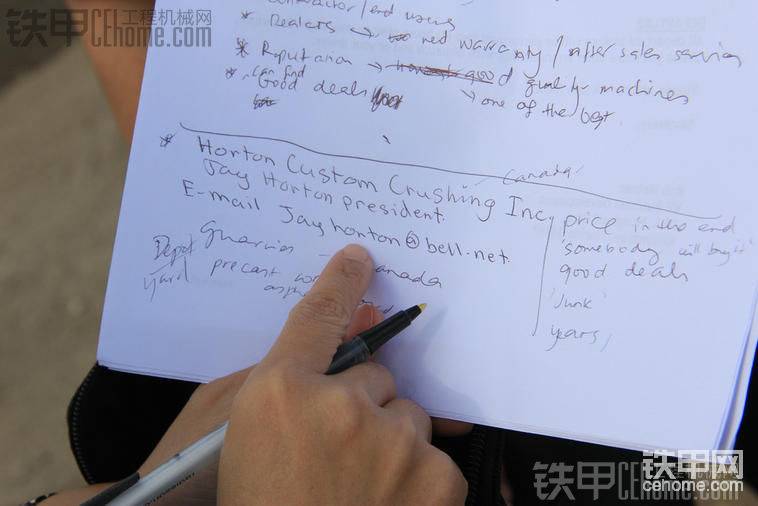 铁甲 工程机械网
CEhome.com
contractor / end users
* Dealers → no red warranty / after sales service
* Reputation → good quality machines
* can find
Good deals → one of the best.
Canada
* Horton Custom Crushing Inc,
Jay Horton president.
E-mail Jayhorton@bell.net
Canada
Depot
yard precast
price in the end
'somebody will buy it'
good deals
'Junk'
years,
铁甲CEhome.com
铁甲网
cehome.com